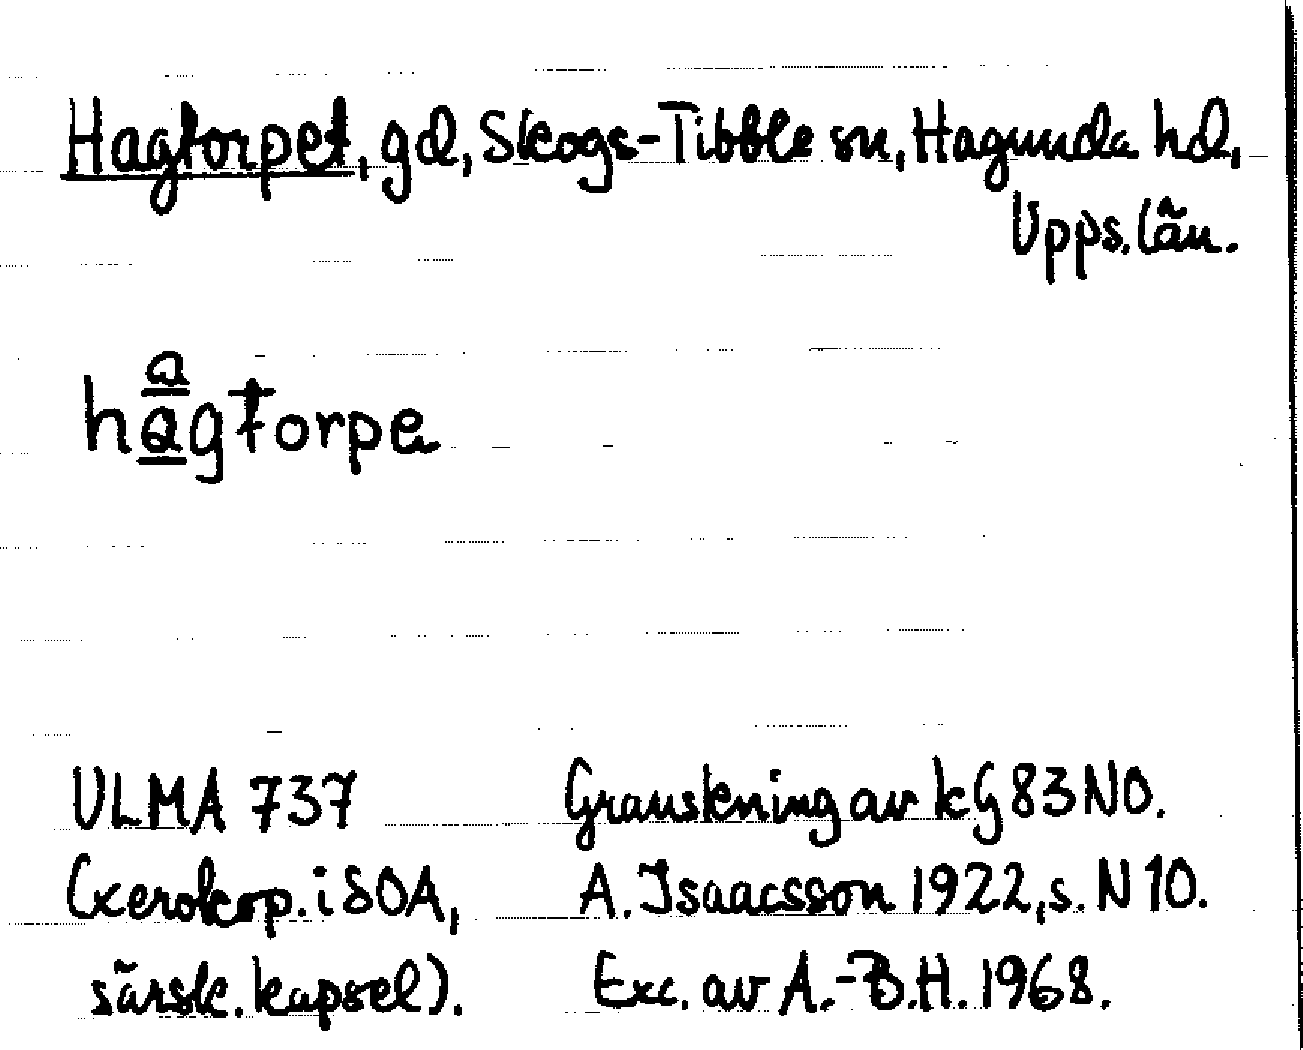 Hagtorpet, gd, Skogs-Tibble sn, Hagunda hd,
Upps. län.
a
hagtorpe
ULMA 737
(xerokop. i SOA,
särsk. kapsel).
Granskning av kG 83 NO.
A. Isaacsson 1922, s. N 10.
Exc. av A.-B.H. 1968.